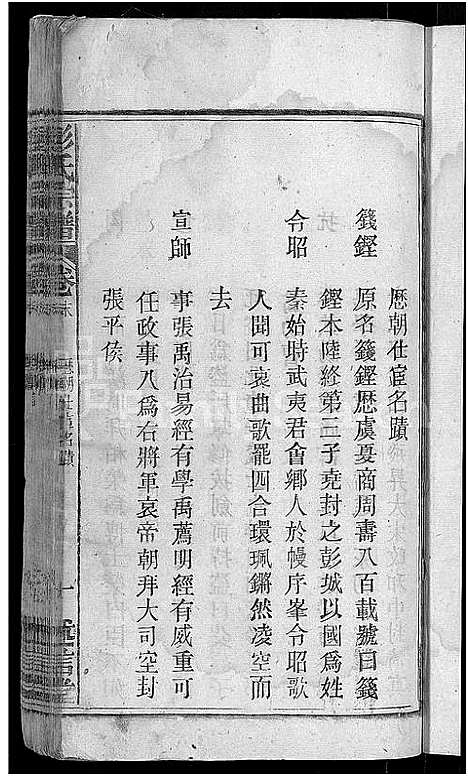 歷朝仕宦名蹟
籛鏗
原名籛鏗歷虞夏商周壽八百載號曰籛
鏗本陸終第三子堯封之彭城以國爲姓
令昭
秦始時武夷君會鄉人於幔序峯令昭歌
人間可哀曲歌罷四合環珮鏘然凌空而
去
宣師
事張禹治易經有學禹薦明經有威重可
任政事入爲右將軍哀帝朝拜大司空封
張平侯
彭氏宗譜
卷末
歷朝仕宦名蹟
一